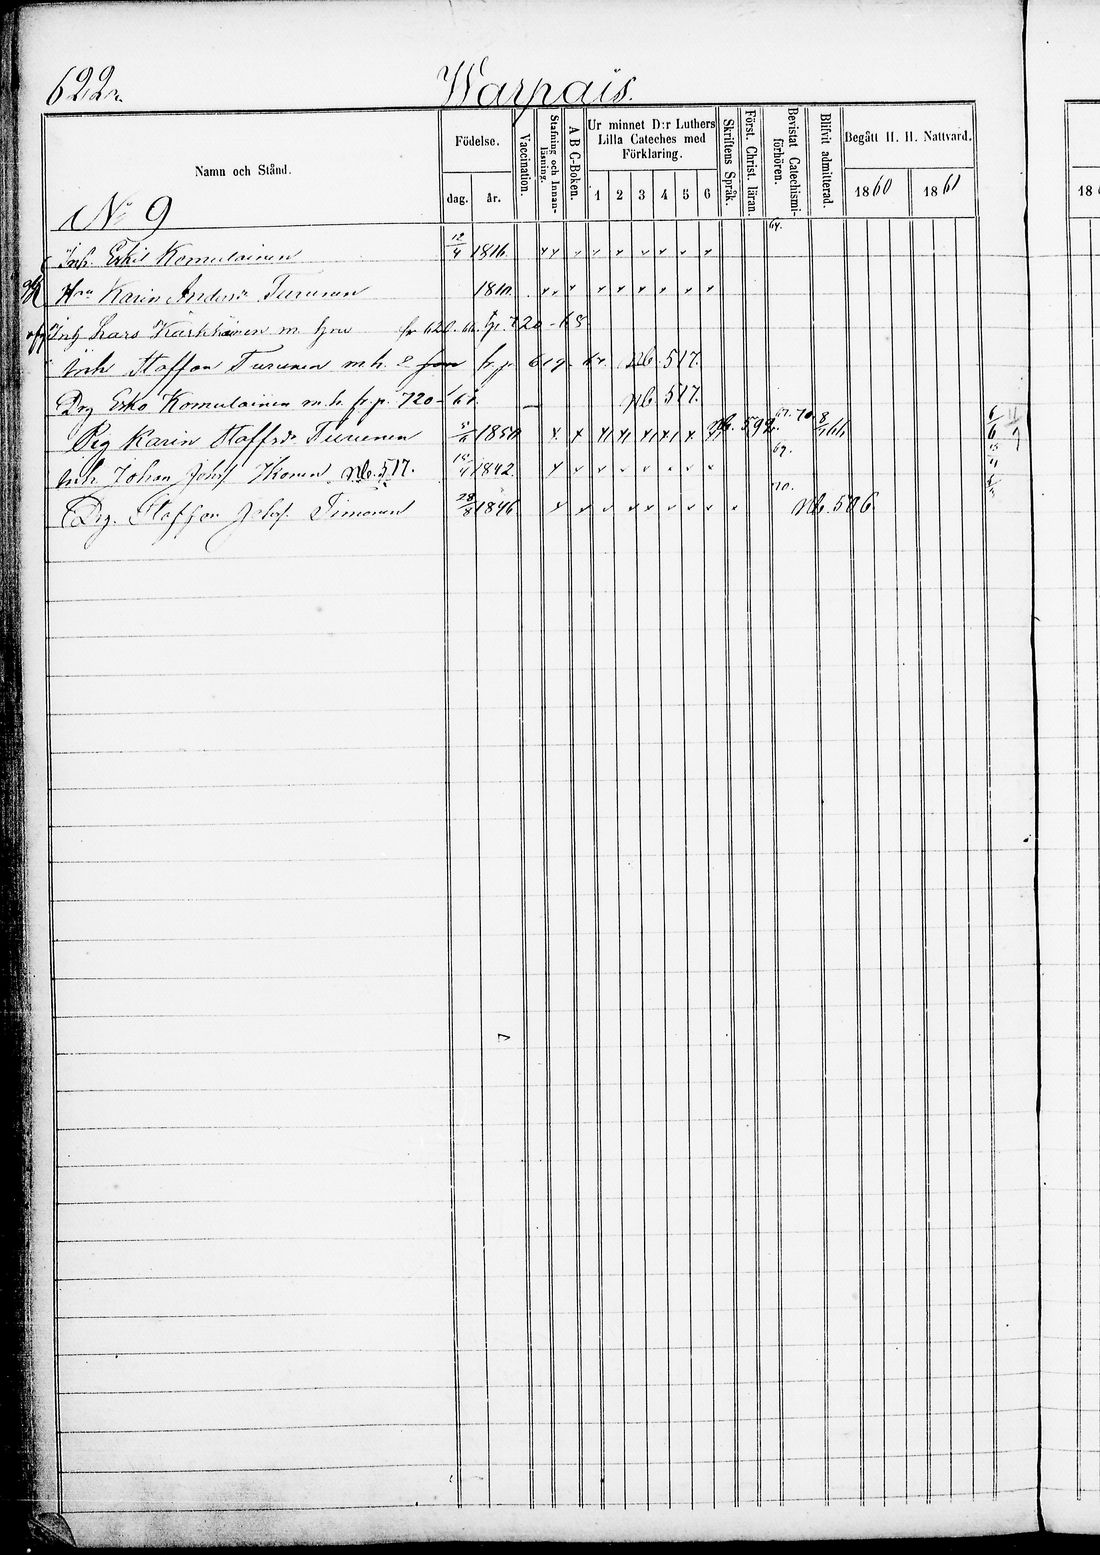 622.
Warpais.
Namn och Stånd.
Födelse.
dag.
år.
Vaccination.
Stafning och Innanläsning.
A B C-Boken.
Ur minnet D:r Luthers Lilla Cateches med Förklaring.
1 2 3 4 5 6
Skriftens Språk.
Först. Christ. läran.
Bevistat Catechismiförhören.
Blifvit admitterad.
Begått H. H. Nattvard.
1860
1861
18
No 9
Inh. Erkil Komulainen 12/4 1816.
64.
Hu Karin Andersdr Turunen 1810.
Inh Lars Kärkkäinen m. hru fr 620. 66. hr. 720-68.
Inh Staffan Turunen m. h. fr p. 619. 67. Nb. 517.
Drg Esko Komulainen m. h. fr. p. 720-61. Nb 517.
Pig Karin Staffsdr Turunen 5/6 1850 Nb. 592. 67. 70. 8/7 66
Inh. Johan Johs Ikonen Nb. 517. 1842. 69.
Drg. Staffan Johs. Timonen 28/8 1846 70. Nb. 506